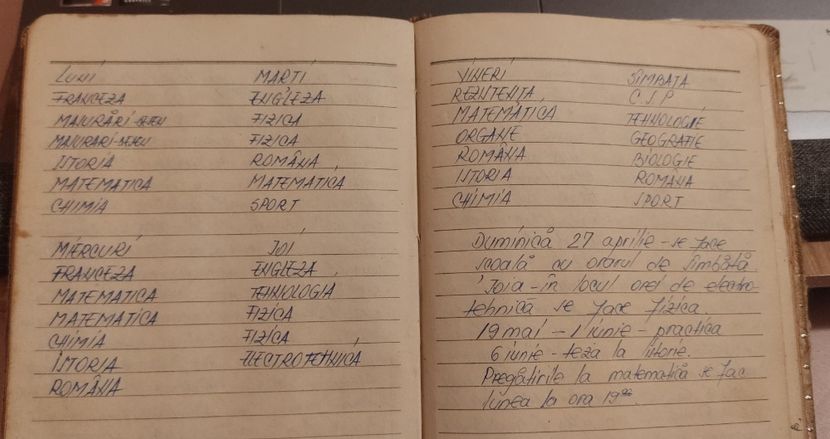 LUNI
FRANCEZA
MAȘURĂRI-DESEN
MAȘURARI-DESEN
ISTORIA
MATEMATICĂ
CHIMIA
MARȚI
ENGLEZA
FIZICA
FIZICA
ROMÂNA
MATEMATICA
SPORT
MIERCURI
FRANCEZA
MATEMATICA
MATEMATICA
CHIMIA
ISTORIA
ROMÂNA
JOI
ENGLEZA
TEHNOLOGIA
FIZICA
FIZICA
ELECTROTEHNICA
VINERI
REZISTENȚA
MATEMATICA
ORGANE
ROMÂNA
ISTORIA
CHIMIA
SÎMBATA
C.S.P
TEHNOLOGIE
GEOGRAFIE
BIOLOGIE
ROMÂNA
SPORT
Duminică 27 aprilie - se face
școală cu orarul de sîmbătă
Joia - în locul orei de electro-
tehnică se face fizica.
19 mai - 1 iunie - practica
6 iunie - teza la istorie.
Pregătirile la matematică se fac
lunea la ora 19⁰⁰.